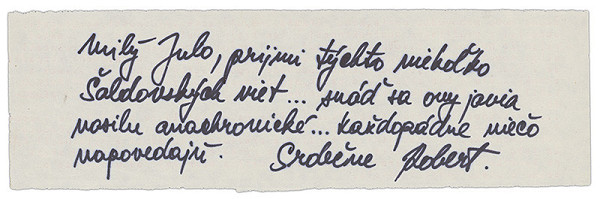 Milý Julo, prijmi týchto niekoľko
Šaldovských viet... snáď sa ony javia
nasilu anachronické... každopádne niečo
napovedajú. Srdečne Robert.